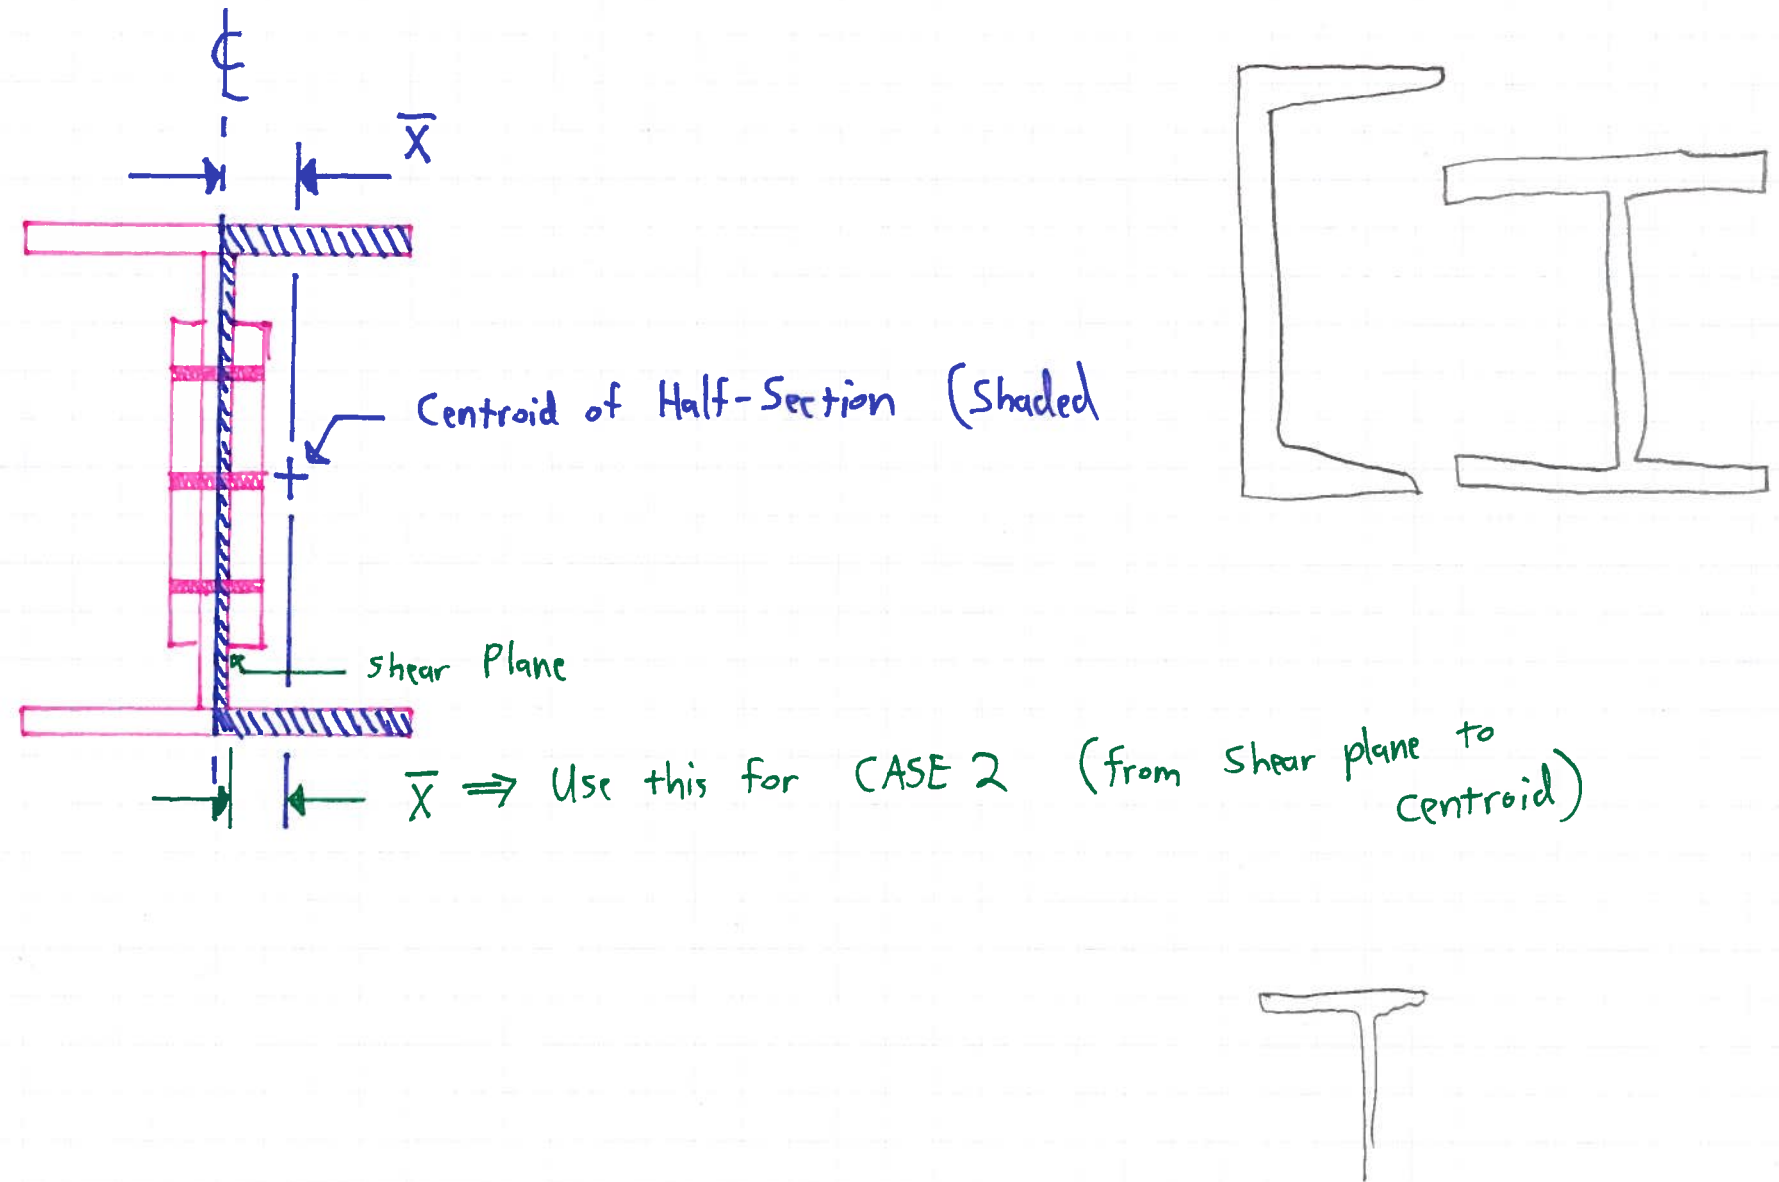 ℄
X̅
Centroid of Half-Section (Shaded
shear Plane
X̅ ⇒ Use this for CASE 2 (from shear plane to
centroid)